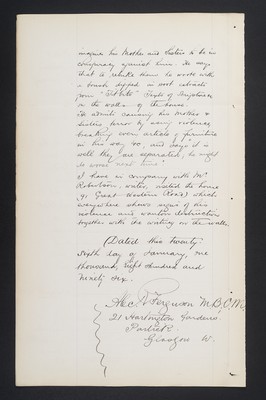 imagines his Mother and Sisters to be in
conspiracy against him. He says
that to rebuke them he wrote with
a brush dipped in soot extracts
from "Fit bits" Texts of Scripture
on the walls of the house.
He admits causing his Mother &
Sisters terror by using violence
breaking even articles of furniture
in his way so, and says it is
well they are separated, he might
do worse next time.
I have in company with Mr
Robertson, writer, visited the house
(91 Great Western Road) which
everywhere shows signs of his
violence and wanton destruction
together with the writing on the walls.
(Dated this twenty
sixth day of January, one
thousand, eight hundred and
ninety six.
Alec. D Ferguson M.B, C.M.
21 Hartington Gardens
Partick
Glasgow W.